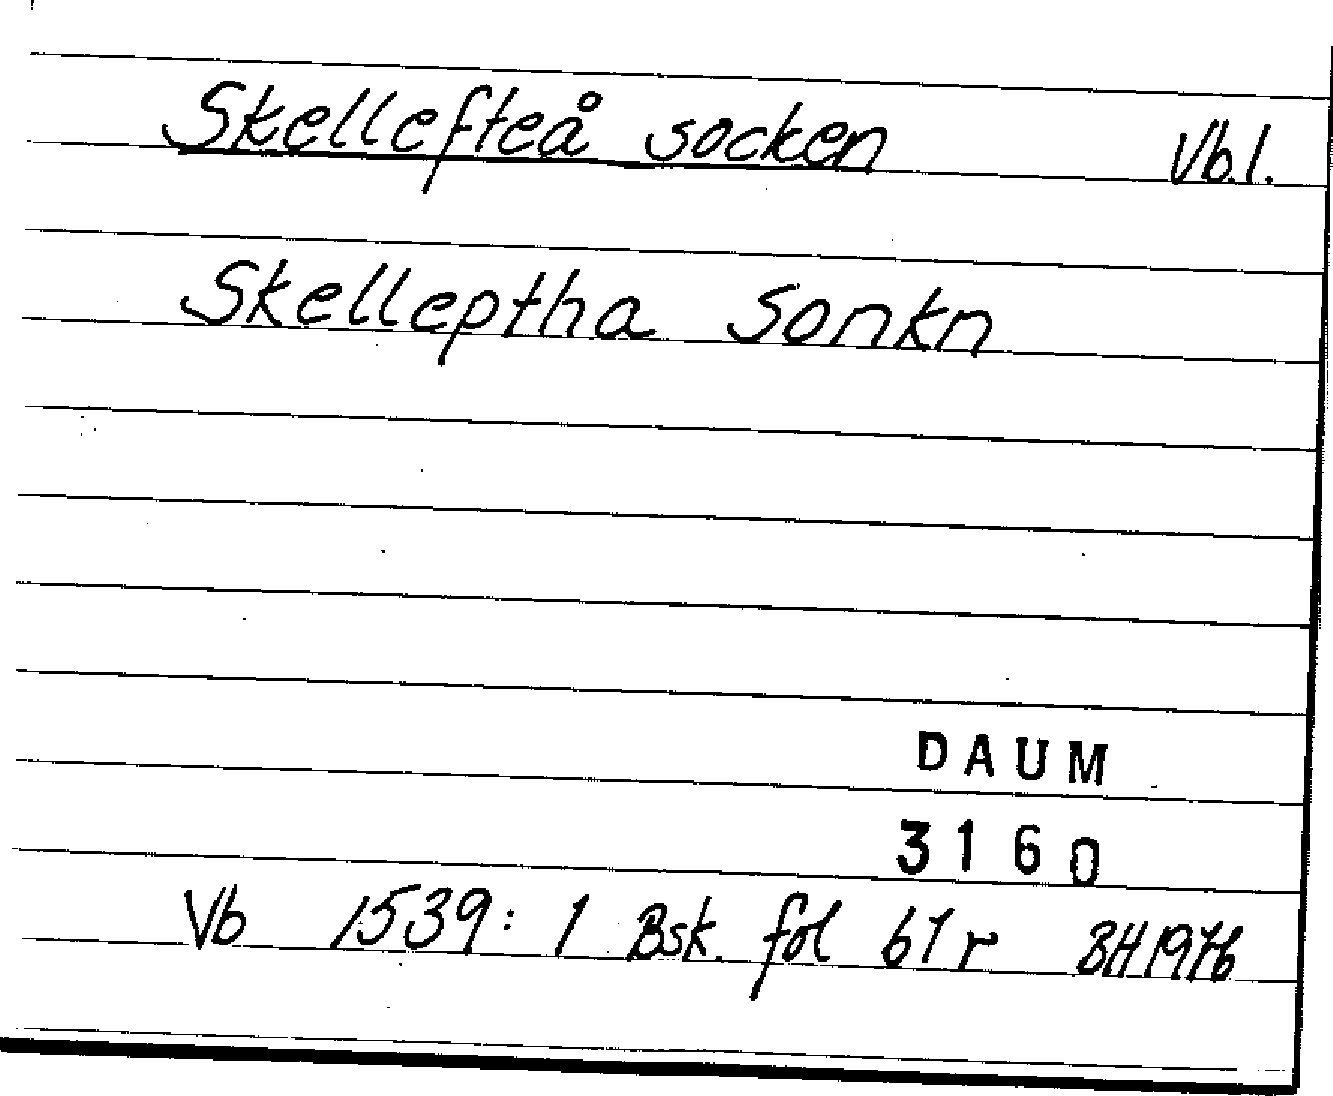 Skellefteå socken Vb.l.
Skelleptha Sonkn
DAUM
3160
Vb 1539: 1 Bsk. fol 61 r BH 1976